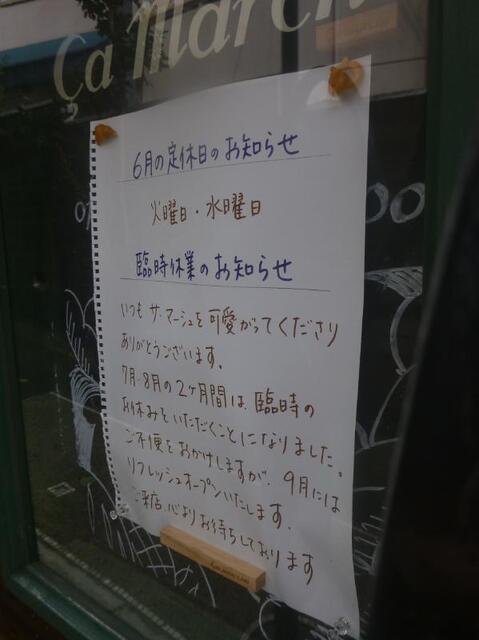 Ça Marche
6月の定休日のお知らせ
火曜日・水曜日
臨時休業のお知らせ
いつも サ・マーシュを可愛がってくださり
ありがとうございます。
7月・8月の2ヶ月間は、臨時の
お休みをいただくことになりました。
ご不便をおかけしますが、9月には
リフレッシュオープンいたします。
ご来店 心よりお待ちしております